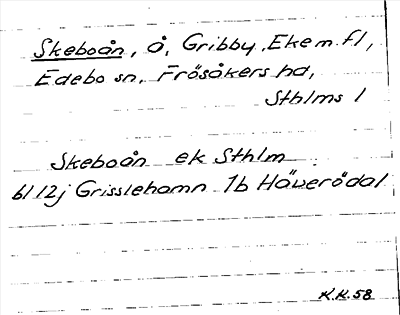 Skeboån, å, Gribby, Eke m. fl,
Edebo sn, Frösåkers hd,
Sthlms l
Skeboån ek Sthlm
bl 12j Grisslehamn 1b Häverödal
K.K. 58